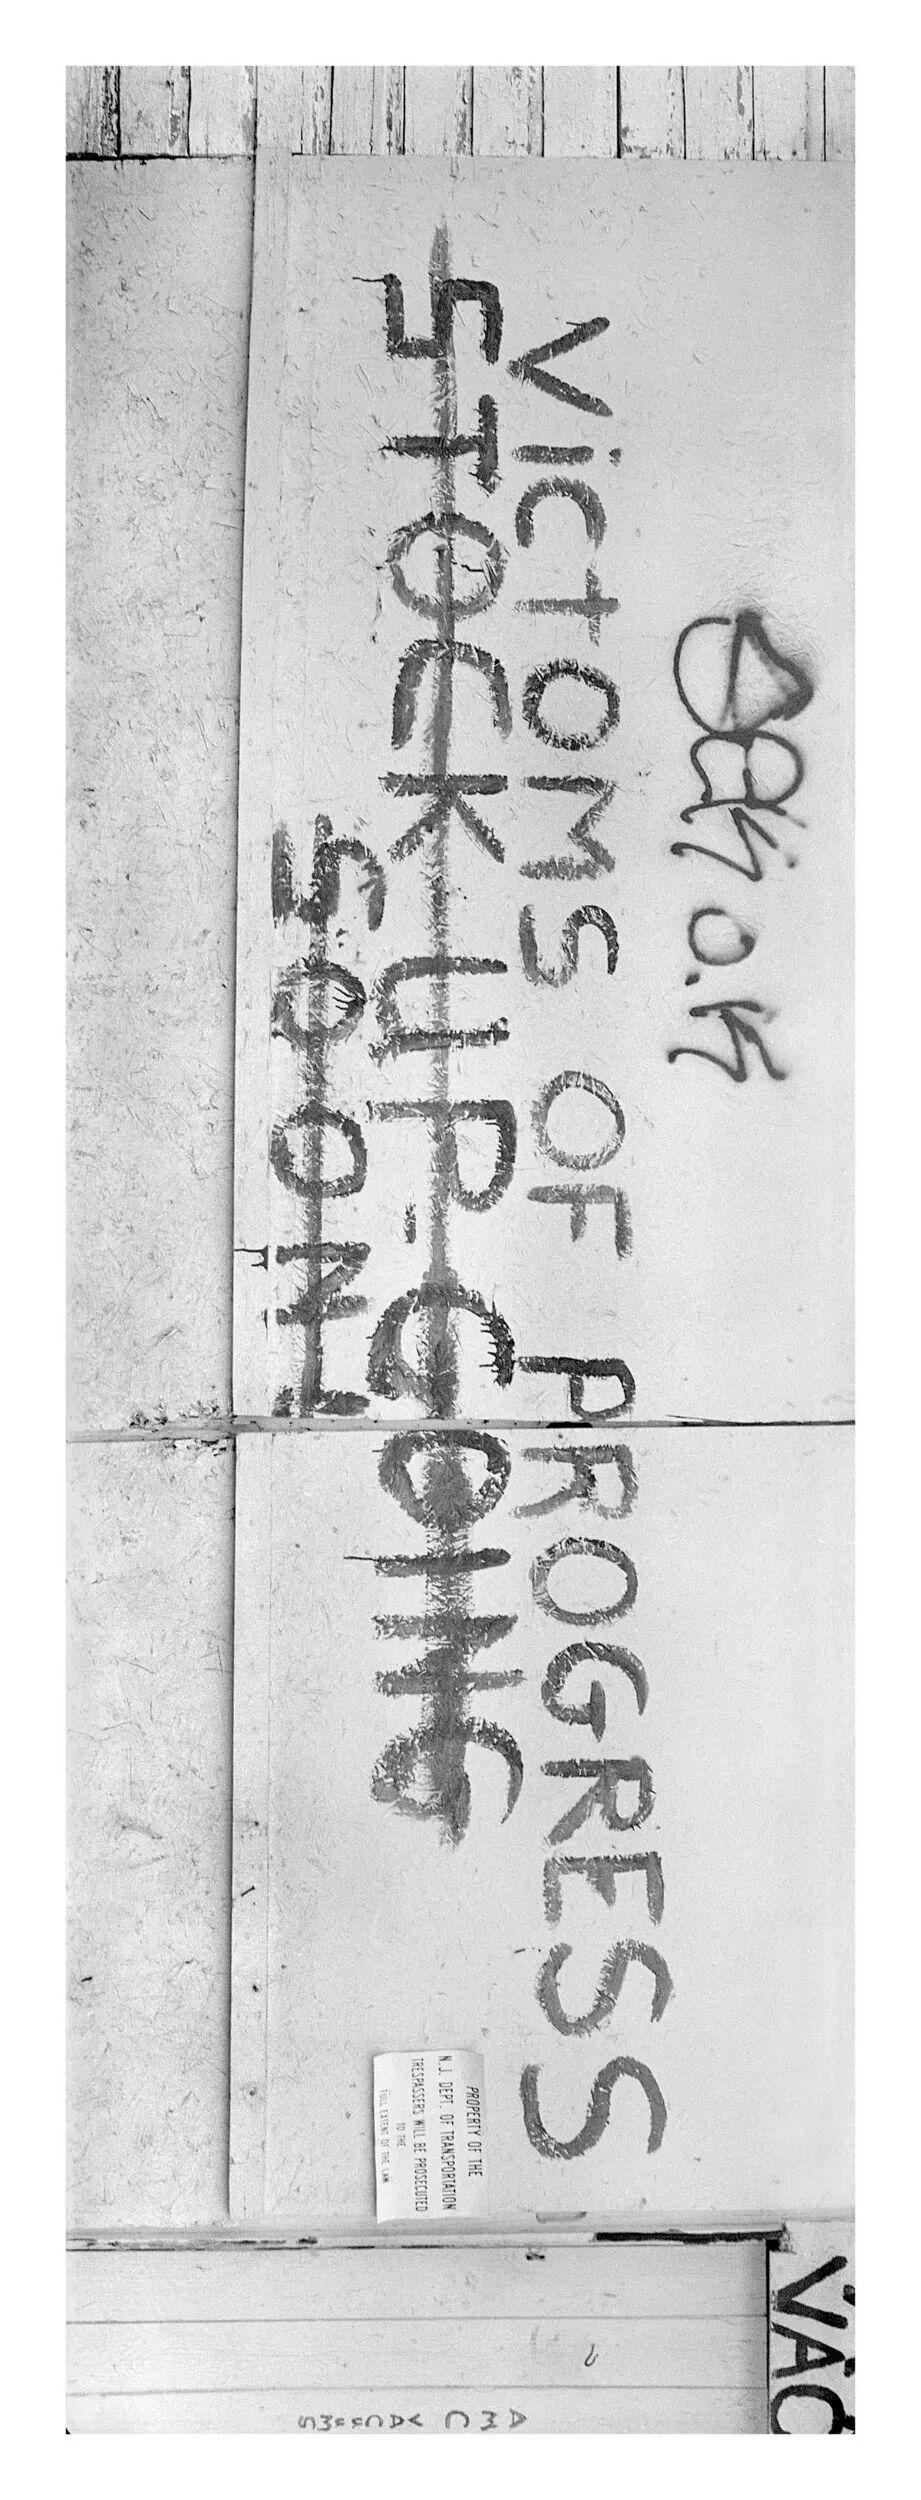 O.K
VictOMS OF PROGRESS
STOCK UP-GOING
SOON!
PROPERTY OF THE
N.J. DEPT. OF TRANSPORTATION
TRESPASSERS WILL BE PROSECUTED
TO THE
FULL EXTENT OF THE LAW
VAC